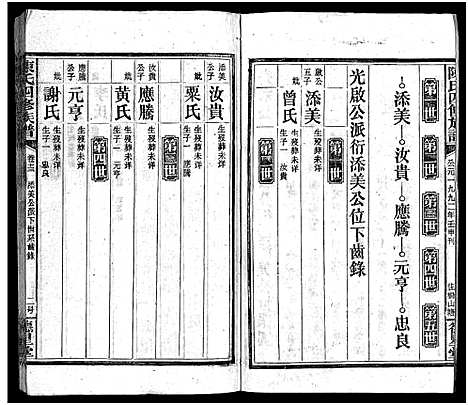 陳氏四修族譜
公元一九九二年壬申刊
德星堂
第一世 第二世 第三世 第四世 第五世
添美—汝貴—應騰—元亨—忠良
光啟公派衍添美公位下齒錄
啟公五子 添美 生歿葬未詳
妣 曾氏 生歿葬未詳 生子一 汝貴
第二世
添美公子 汝貴 生歿葬未詳
妣 栗氏 生歿葬未詳 生子一 應騰
第三世
汝貴公子 應騰 生歿葬未詳
妣 黄氏 生歿葬未詳 生子一 元亨
第四世
應騰公子 元亨 生歿葬未詳
妣 謝氏 生歿葬未詳 生子一 忠良
陳氏四修族譜
添美公派下齒錄
德星堂